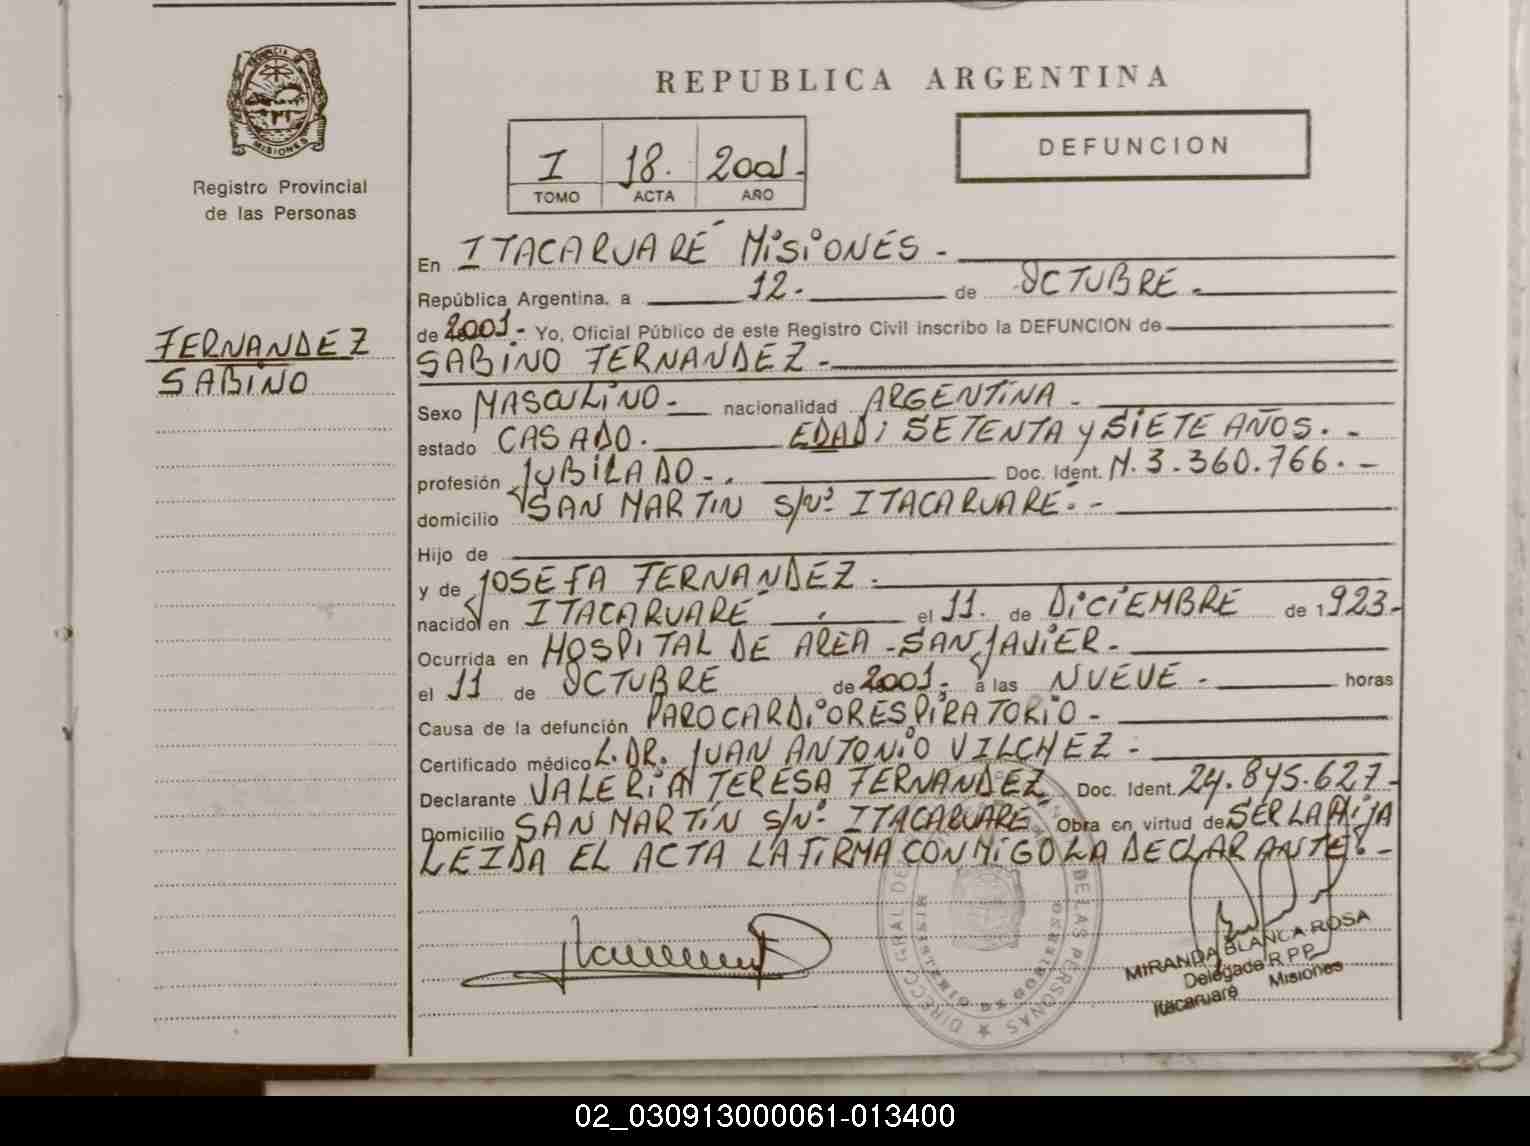 PROVINCIA DE
MISIONES
Registro Provincial
de las Personas
FERNANDEZ
SABINO
REPUBLICA ARGENTINA
I 18. 2001.
TOMO ACTA AÑO
DEFUNCION
En ITACARUARÉ MISIONES -
República Argentina, a 12. de OCTUBRE -
de 2001 - Yo, Oficial Público de este Registro Civil inscribo la DEFUNCION de
SABINO FERNANDEZ -
Sexo MASCULINO - nacionalidad ARGENTINA -
estado CASADO. EDAD: SETENTA y SIETE AÑOS. -
profesión JUBILADO -. Doc. Ident. M. 3.360.766. -
domicilio SAN MARTIN S/Nº ITACARUARE. -
Hijo de
y de JOSEFA FERNANDEZ.
nacido en ITACARUARÉ el 11. de DICIEMBRE de 1923.-
Ocurrida en HOSPITAL DE AREA - SAN JAVIER -
el 11 de OCTUBRE de 2001; a las NUEVE - horas
Causa de la defunción PARO CARDIORESPIRATORIO -
Certificado médico L. DR. JUAN ANTONIO VILCHEZ -
Declarante VALERIA TERESA FERNANDEZ Doc. Ident. 24.845.627-
Domicilio SAN MARTIN S/Nº ITACARUARÉ Obra en virtud de SER LA HIJA
LEIDA EL ACTA LA FIRMA CONMIGO LA DECLARANTE. -
DIRECC. GRAL DE DE LAS PERSONAS
MIRANDA BLANCA ROSA
Delegada R.P.P.
Itacaruaré Misiones
02_030913000061-013400